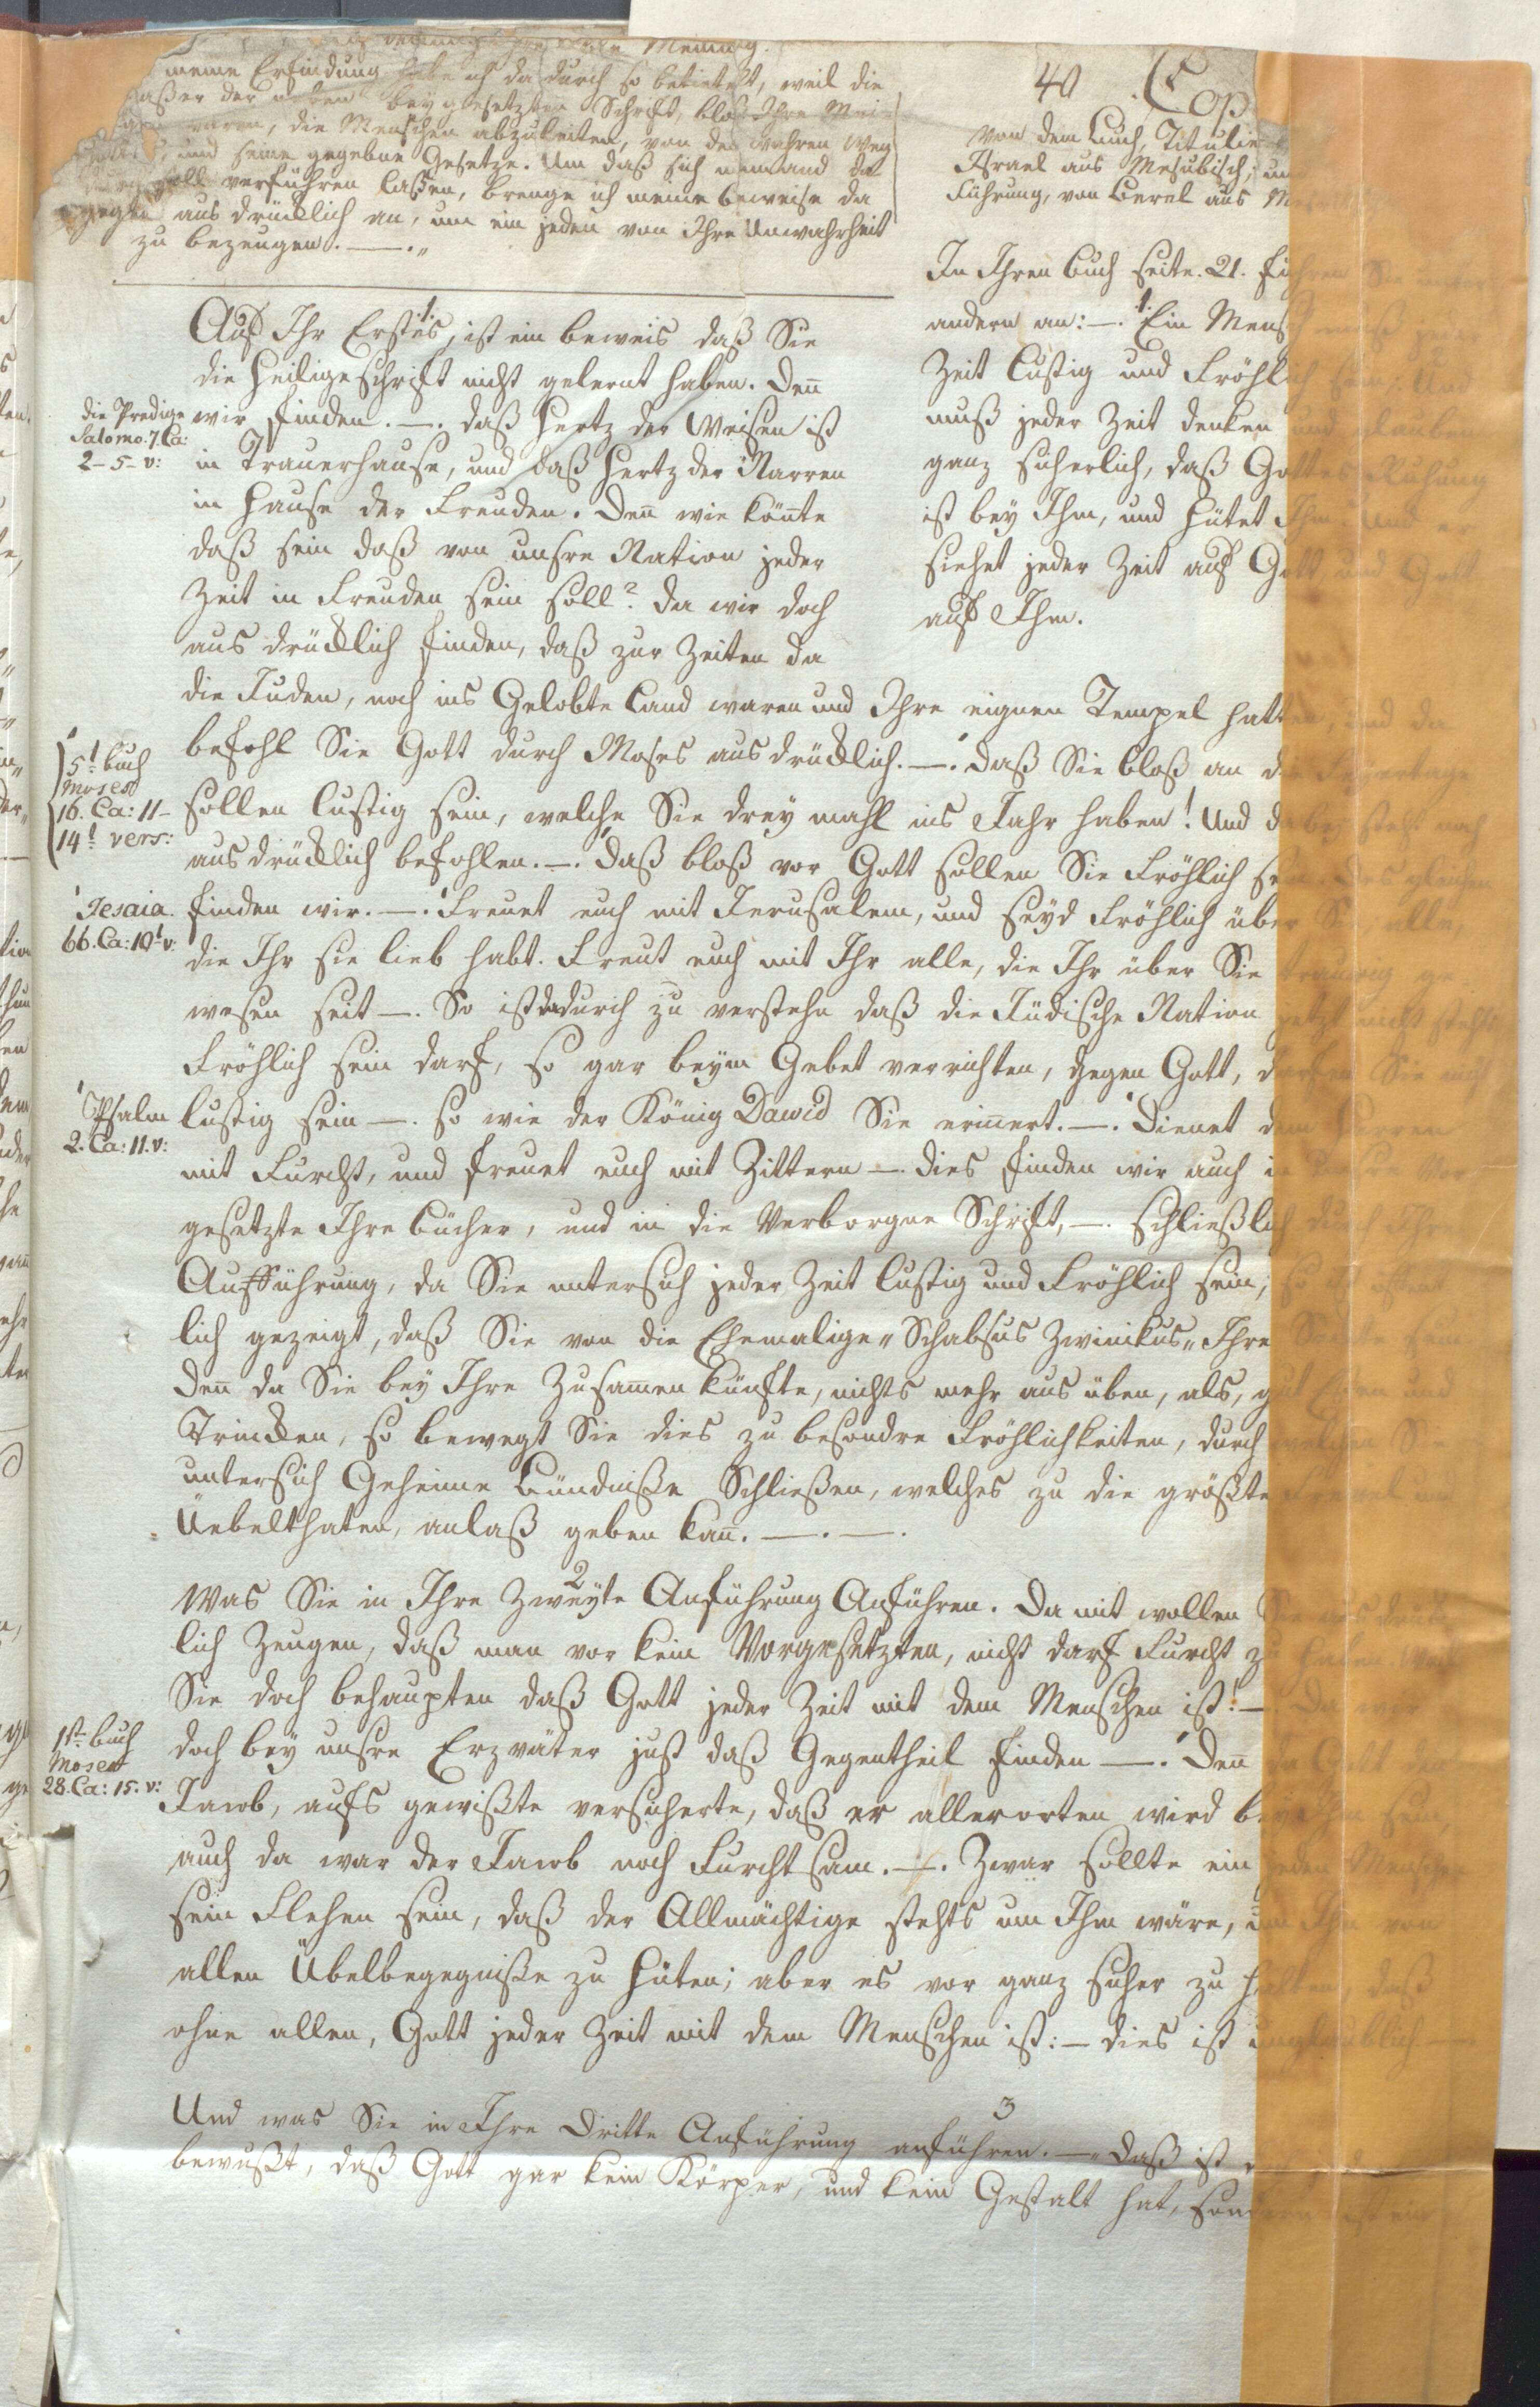 Meinung.
meine Erfindung habe ich da durch so betietelt, weil die
außer der neben beygesetzten Schrift, bloß Ihre Mei-
waren, die Menschen abzuleiten, von den wahren Weg
und seine gegebne Gesetze. Um daß sich niemand da
soll verführen laßen, brenge ich meine beweise da
gegen aus drücklich an, um ein jeden von Ihre Unwahrheit
zu bezeugen. —.„
40
Cop
Von dem Buch, Titulie
Israel aus Mesubisch, un
Führung, von Berel aus M
In Ihren buch seite. 21. führen Sie unter
andern an: —. 1. Ein Mensch muß jeder
Zeit Lustig und Fröhlich sein: 2 Und
muß jeder Zeit denken und glauben
ganz sicherlich, daß Gottes Ruhung
ist bey Ihm, und hütet Ihm. Und er
siehet jeder Zeit auf Gott, und Gott
auf Ihm.
Auf Ihr Erstes 1., ist ein beweis daß Sie
die Heilige schrift nicht gelernt haben. Deñ
wir finden. —. daß Hertz der Weisen ist
in Trauerhause, und daß Hertz der Narren
in Hause der Freuden. Deñ wie köñte
daß sein daß von unsre Nation jeder
Zeit in Freuden sein soll? da wir doch
aus drücklich finden, daß zur Zeiten da
die Predige
Salomo. 7. Ca:
2-5-v:
die Juden, noch ins Gelobte Land waren und Ihre eignen Tempel hatten, und da
befohl Sie Gott durch Moses aus drücklich. —. daß Sie bloß an die Feyertage
sollen lustig sein, welche Sie drey mahl ins Jahr haben! Und dabey steht noch
aus drücklich befohlen. —. daß bloß vor Gott sollen Sie Fröhlich sein. Des gleichen
finden wir. —. Freuet euch mit Jerusalem, und seyd Fröhlich über Sie, alle,
die Ihr sie lieb habt. Freut euch mit Ihr alle, die Ihr über Sie traurig ge-
wesen seit —. So ist dadurch zu verstehn daß die Jüdische Nation jetzt nicht stehts
Fröhlich sein darf, so gar beym Gebet verrichten, gegen Gott, darfen Sie nicht
lustig sein —. so wie der König Dawid Sie erinnert. —. Dienet dem Herren
mit Furcht, und freuet euch mit Zittern —. dies finden wir auch in Vor
gesetzte Ihre bücher, und in die Verborgne Schrift, —. schließlich durch Ihre
Aufführung, da Sie untersich jeder Zeit lustig und Fröhlich sein, so
lich gezeigt, daß Sie von die Ehemalige „Schabsus Zwinikus„ Ihre Sekte sein
Deñ da Sie bey Ihre Zusamenkünfte, nichts mehr aus üben, als, gut Eßen und
Trincken, so bewegt Sie dies zu besondre Fröhlichkeiten, durch welchen Sie
untersich Geheime Bündniße Schließen, welches zu die größte Frevel und
Üebelthaten, anlaß geben kañ. —. —.
5t buch
Moses
16. Ca: 11-
14t vers:
Jesaia.
66. Ca: 10t v:
Psalm
2. Ca: 11. v:
Was Sie in Ihre Zweÿte 2 Anführung Anführen. Da mit wollen Sie ausdrück
lich Zeugen, daß man vor kein Vorgesetzten, nicht darf Furcht zu haben. Weil
Sie doch behaupten daß Gott jeder Zeit mit dem Menschen ist! — Da wir
doch bey unsre Erzväter just daß Gegentheil finden —. Deñ da Gott den
Jacob, aufs gewißte versicherte, daß er allerorten wird bey Ihm sein,
auch da war der Jacob noch Furchtsam. —. Zwar sollte ein jeden Menschen
sein Flehen sein, daß der Allmächtige stehts um Ihm wäre, um Ihn von
allen Übelbegegniße zu hüten; aber es vor ganz sicher zu halten, daß
ohne allen, Gott jeder Zeit mit dem Menschen ist: — dies ist unglaublich. —
1st buch
Moses
28. Ca: 15. v:
Und was Sie in Ihre Dritte 3 Anführung anführen. — „ daß ist
bewußt, daß Gott gar kein Körper, und kein Gestalt hat, sondern ist ein